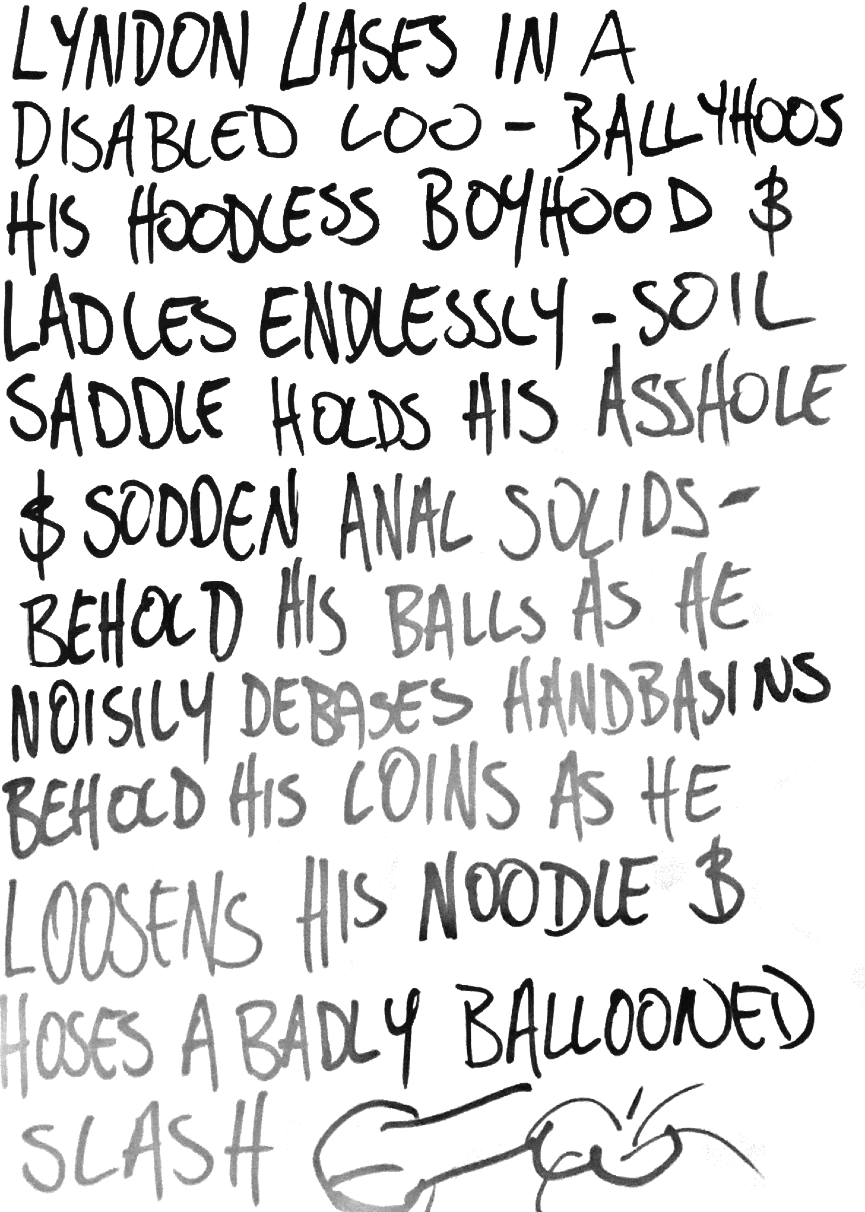 LYNDON LIASES IN A
DISABLED LOO - BALLYHOOS
HIS HOODLESS BOYHOOD $
LADLES ENDLESSLY - SOIL
SADDLE HOLDS HIS ASSHOLE
$ SODDEN ANAL SOLIDS -
BEHOLD HIS BALLS AS HE
NOISILY DEBASES HANDBASINS
BEHOLD HIS LOINS AS HE
LOOSENS HIS NOODLE $
HOSES A BADLY BALLOONED
SLASH